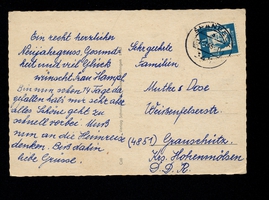 Ein recht herzlicher
Neujahrsgruss, Gesund-
heit und viel Glück
wünscht Frau Hampel
Bin nun schon 14 Tage da
gefallen hat's mir sehr aber
alles Schöne geht zu
schnell vorbei. Muss
nun an die Heimreise
denken. Bis dahin
liebe Grüsse.
Sehr geehrte
Familien
Muthe & Dose
Weissenfelserstr.
(4851) Granschütz
Krs. Hohenmölsen
D.D.R